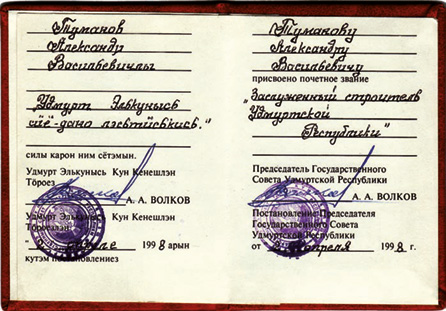 Туманов
Александр
Васильевичлы
„Удмурт Элькунысь
дано лэсьтӥськись."
силы карон ним сётэмын.
Удмурт Элькунысь Кун Кенешлэн
Тӧроез
А. А. ВОЛКОВ
Удмурт Элькунысь Кун Кенешлэн
Тӧроезлэн
1998 арын
кутэм постановлениез
Туманову
Александру
Васильевичу
присвоено почетное звание
„Заслуженный строитель
Удмуртской
Республики"
Председатель Государственного
Совета Удмуртской Республики
А. А. ВОЛКОВ
Постановление Председателя
Государственного Совета
Удмуртской Республики
от апреля 1998 г.